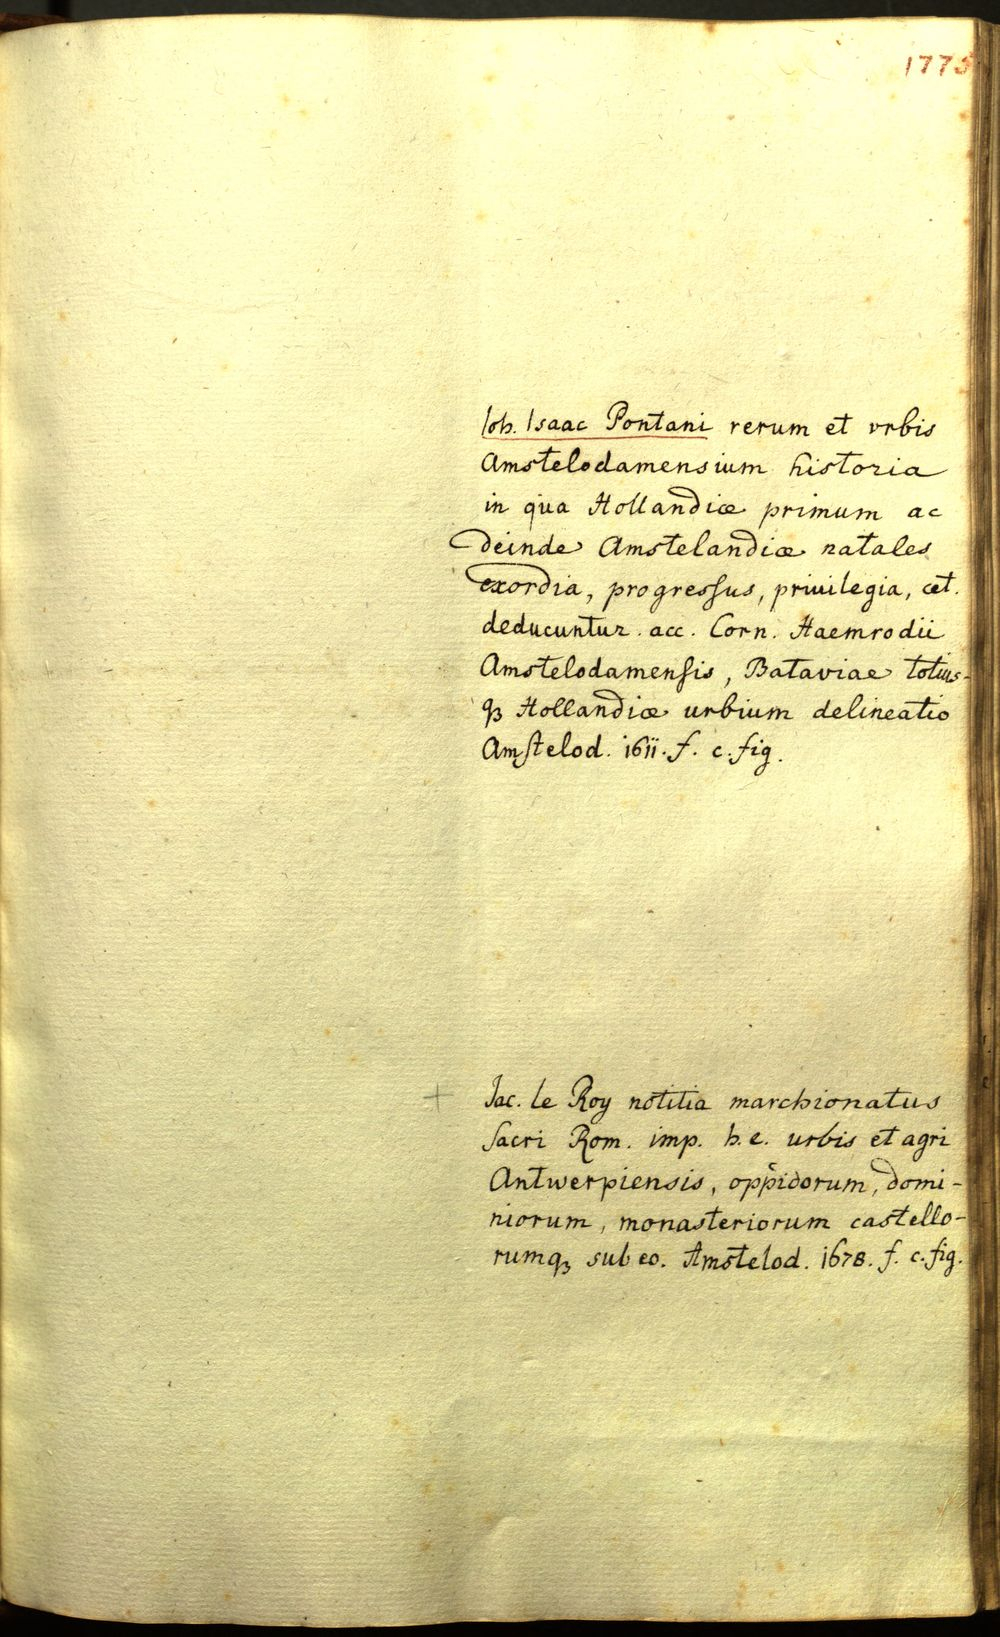 1775
Ioh. Isaac Pontani rerum et vrbis
Amstelodamensium historia
in qua Hollandiæ primum ac
deinde Amstelandiæ natales
exordia, progressus, priuilegia, cet.
deducuntur. acc. Corn. Haemrodii
Amstelodamensis, Bataviae totius-
qȝ Hollandiæ urbium delineatio
Amstelod. 1611. f. c. fig.
+ Jac. le Roy notitia marchionatus
sacri Rom. imp. h. e. urbis et agri
Antwerpiensis, oppidorum, domi-
niorum, monasteriorum castello-
rumqȝ sub eo. Amstelod. 1678. f. c. fig.